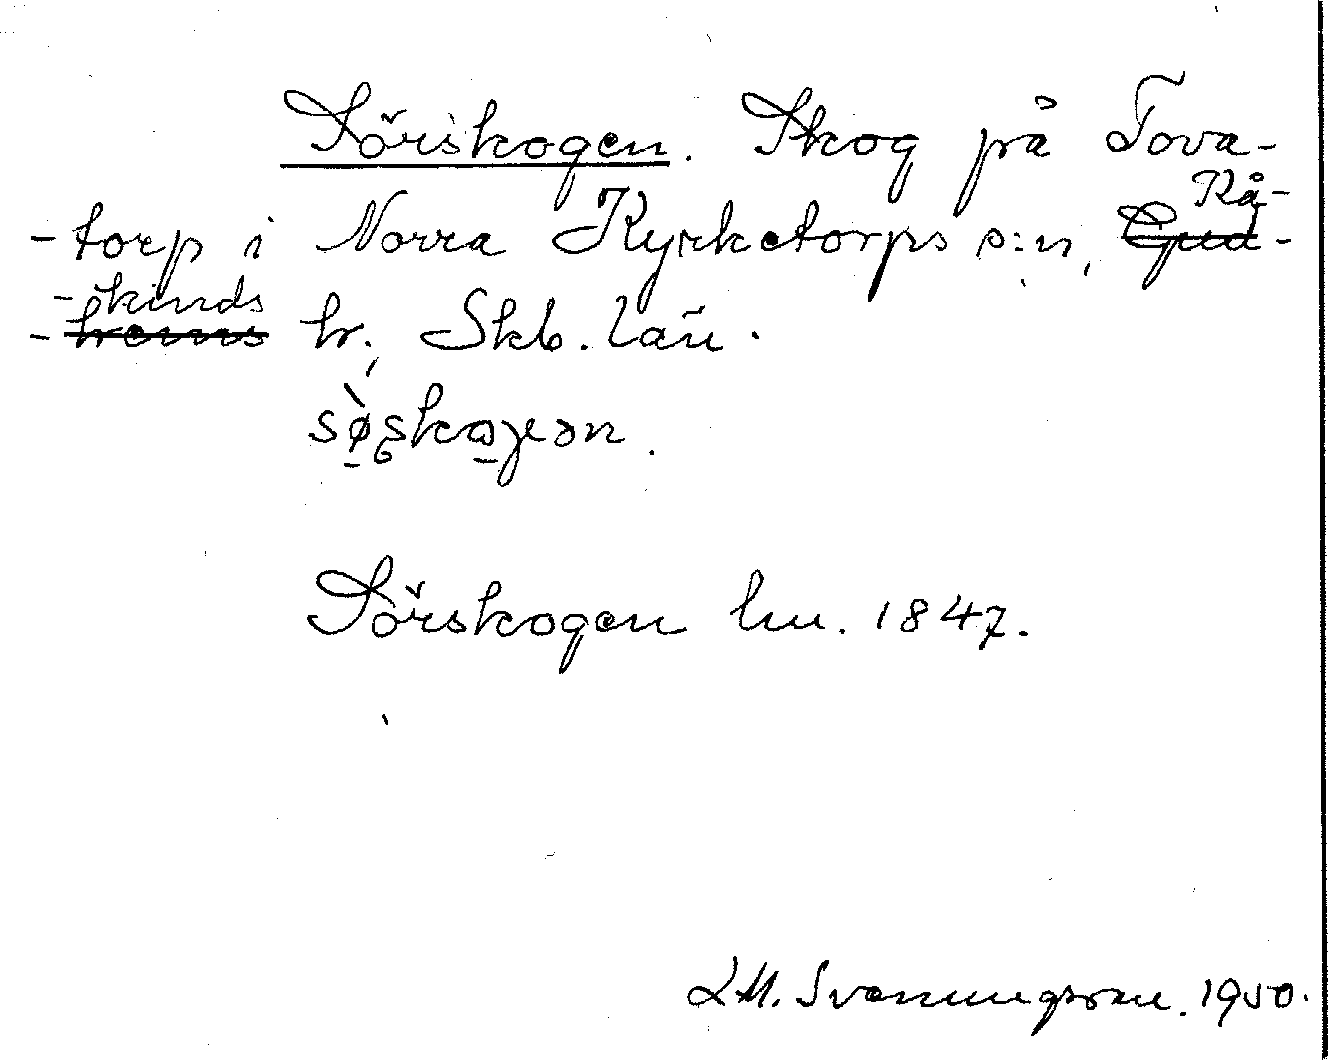 Sörskogen. Skog på Tova-
-torp i Norra Kyrketorps s:n, Kå-
-kinds hr, Skb. län.
Sörskogen lm. 1847.
L.M. Svenungsson. 1950.